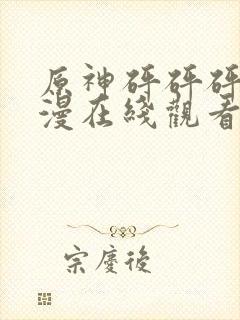 原神砰砰砰
漫在綫觀看
宗慶後